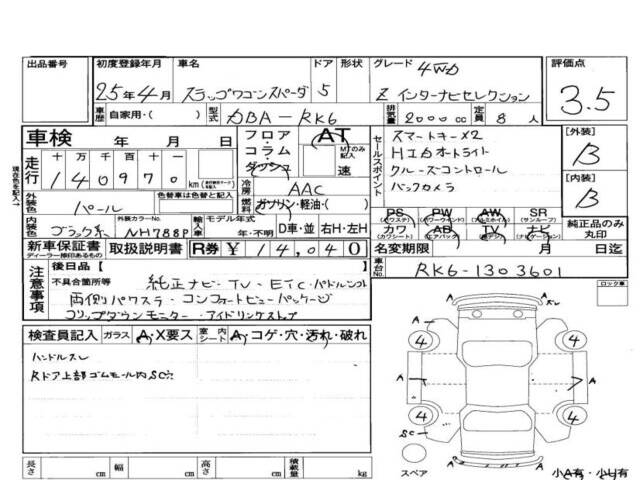 出品番号 初度登録年月 車名 ドア 形状 グレード 評価点
25年4月 ステップワゴンスパーダ 5 4WD Z インターナビセレクション 3.5
車歴 自家用・( ) 型式 DBA-RK6 排気量 2000cc 定員 8人
車検 年 月 日
走行 十万千百十一
140970 km
フロア・コラム・ダッシュ AT MTのみ記入 速
冷房 AAC
燃料 ガソリン・軽油・( )
セールスポイント
スマートキー×2
HIDオートライト
クルーズコントロール
バックカメラ
[外装] B
[内装] B
外装色 パール 色替車は色替と記入
内装色 ブラック系 外装カラーNo. NH788P 輸入車 モデル年式 年・不明 D車・並 右H・左H
PS (パワステ) PW (パワーウインド) AW (アルミホイル) SR (サンルーフ)
カワ (カワシート) AB (エアバック) TV ナビ (ナビゲーション) 純正品のみ丸印
新車保証書 ディーラー捺印あるもの 取扱説明書 R券 ¥14,040
名変期限 月 日迄
車台No. RK6-1303601
注意事項 後日品( )
不具合箇所等 純正ナビ・TV・ETC・パドルシフト
両側パワスラ・コンフォートビューパッケージ
フリップダウンモニター・アイドリングストップ
ロック車
検査員記入 ガラス A・X要ス 室内シート A・コゲ・穴・汚れ・破れ
ハンドルスレ
Rドア上部ゴムモール内SC穴
A A
4 4
A A
4 4
SC A
スペア A A
長さ cm 幅 cm 高さ cm 積載量 kg
小A有・小U有